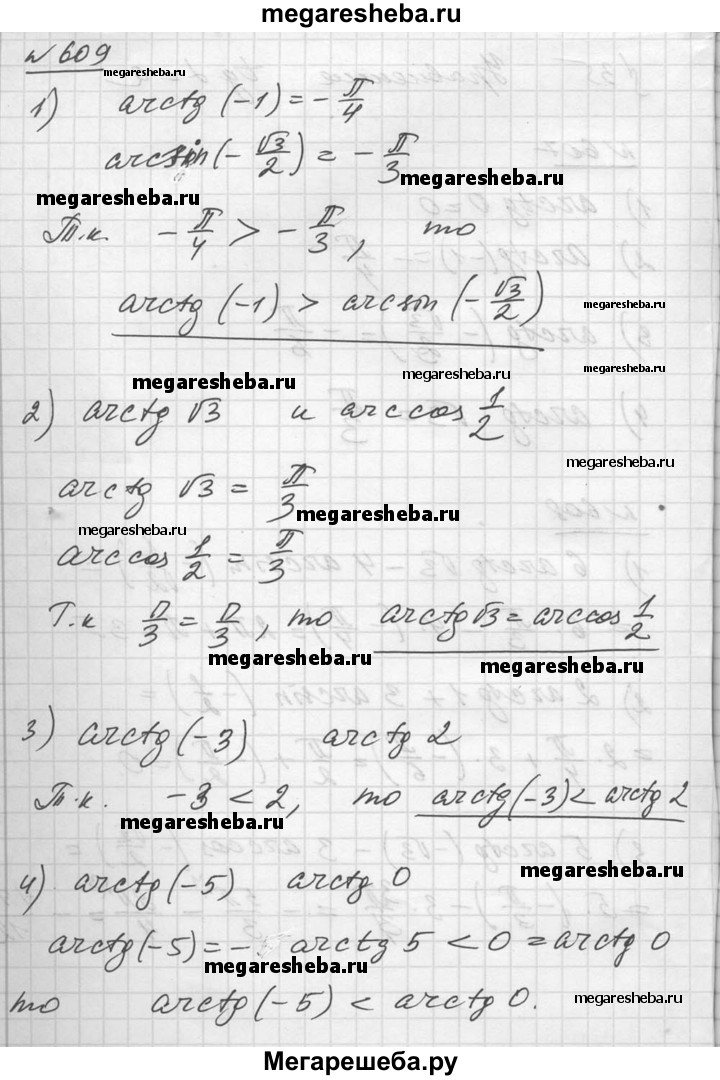 megaresheba.ru
№ 609
megaresheba.ru
1) arctg (-1) = - π/4
arcsin (- √3/2) = - π/3
megaresheba.ru
megaresheba.ru
Т.к. - π/4 > - π/3, то
megaresheba.ru
arctg (-1) > arcsin (- √3/2)
megaresheba.ru
megaresheba.ru
megaresheba.ru
2) arctg √3 и arccos 1/2
megaresheba.ru
arctg √3 = π/3
megaresheba.ru
megaresheba.ru
arccos 1/2 = π/3
Т.к π/3 = π/3, то arctg √3 = arccos 1/2
megaresheba.ru
megaresheba.ru
3) arctg (-3) arctg 2
Т.к. -3 < 2, то arctg (-3) < arctg 2
megaresheba.ru
megaresheba.ru
4) arctg (-5) arctg 0
arctg (-5) = - arctg 5 < 0 = arctg 0
megaresheba.ru
то arctg (-5) < arctg 0.
megaresheba.ru
Мегарешеба.ру